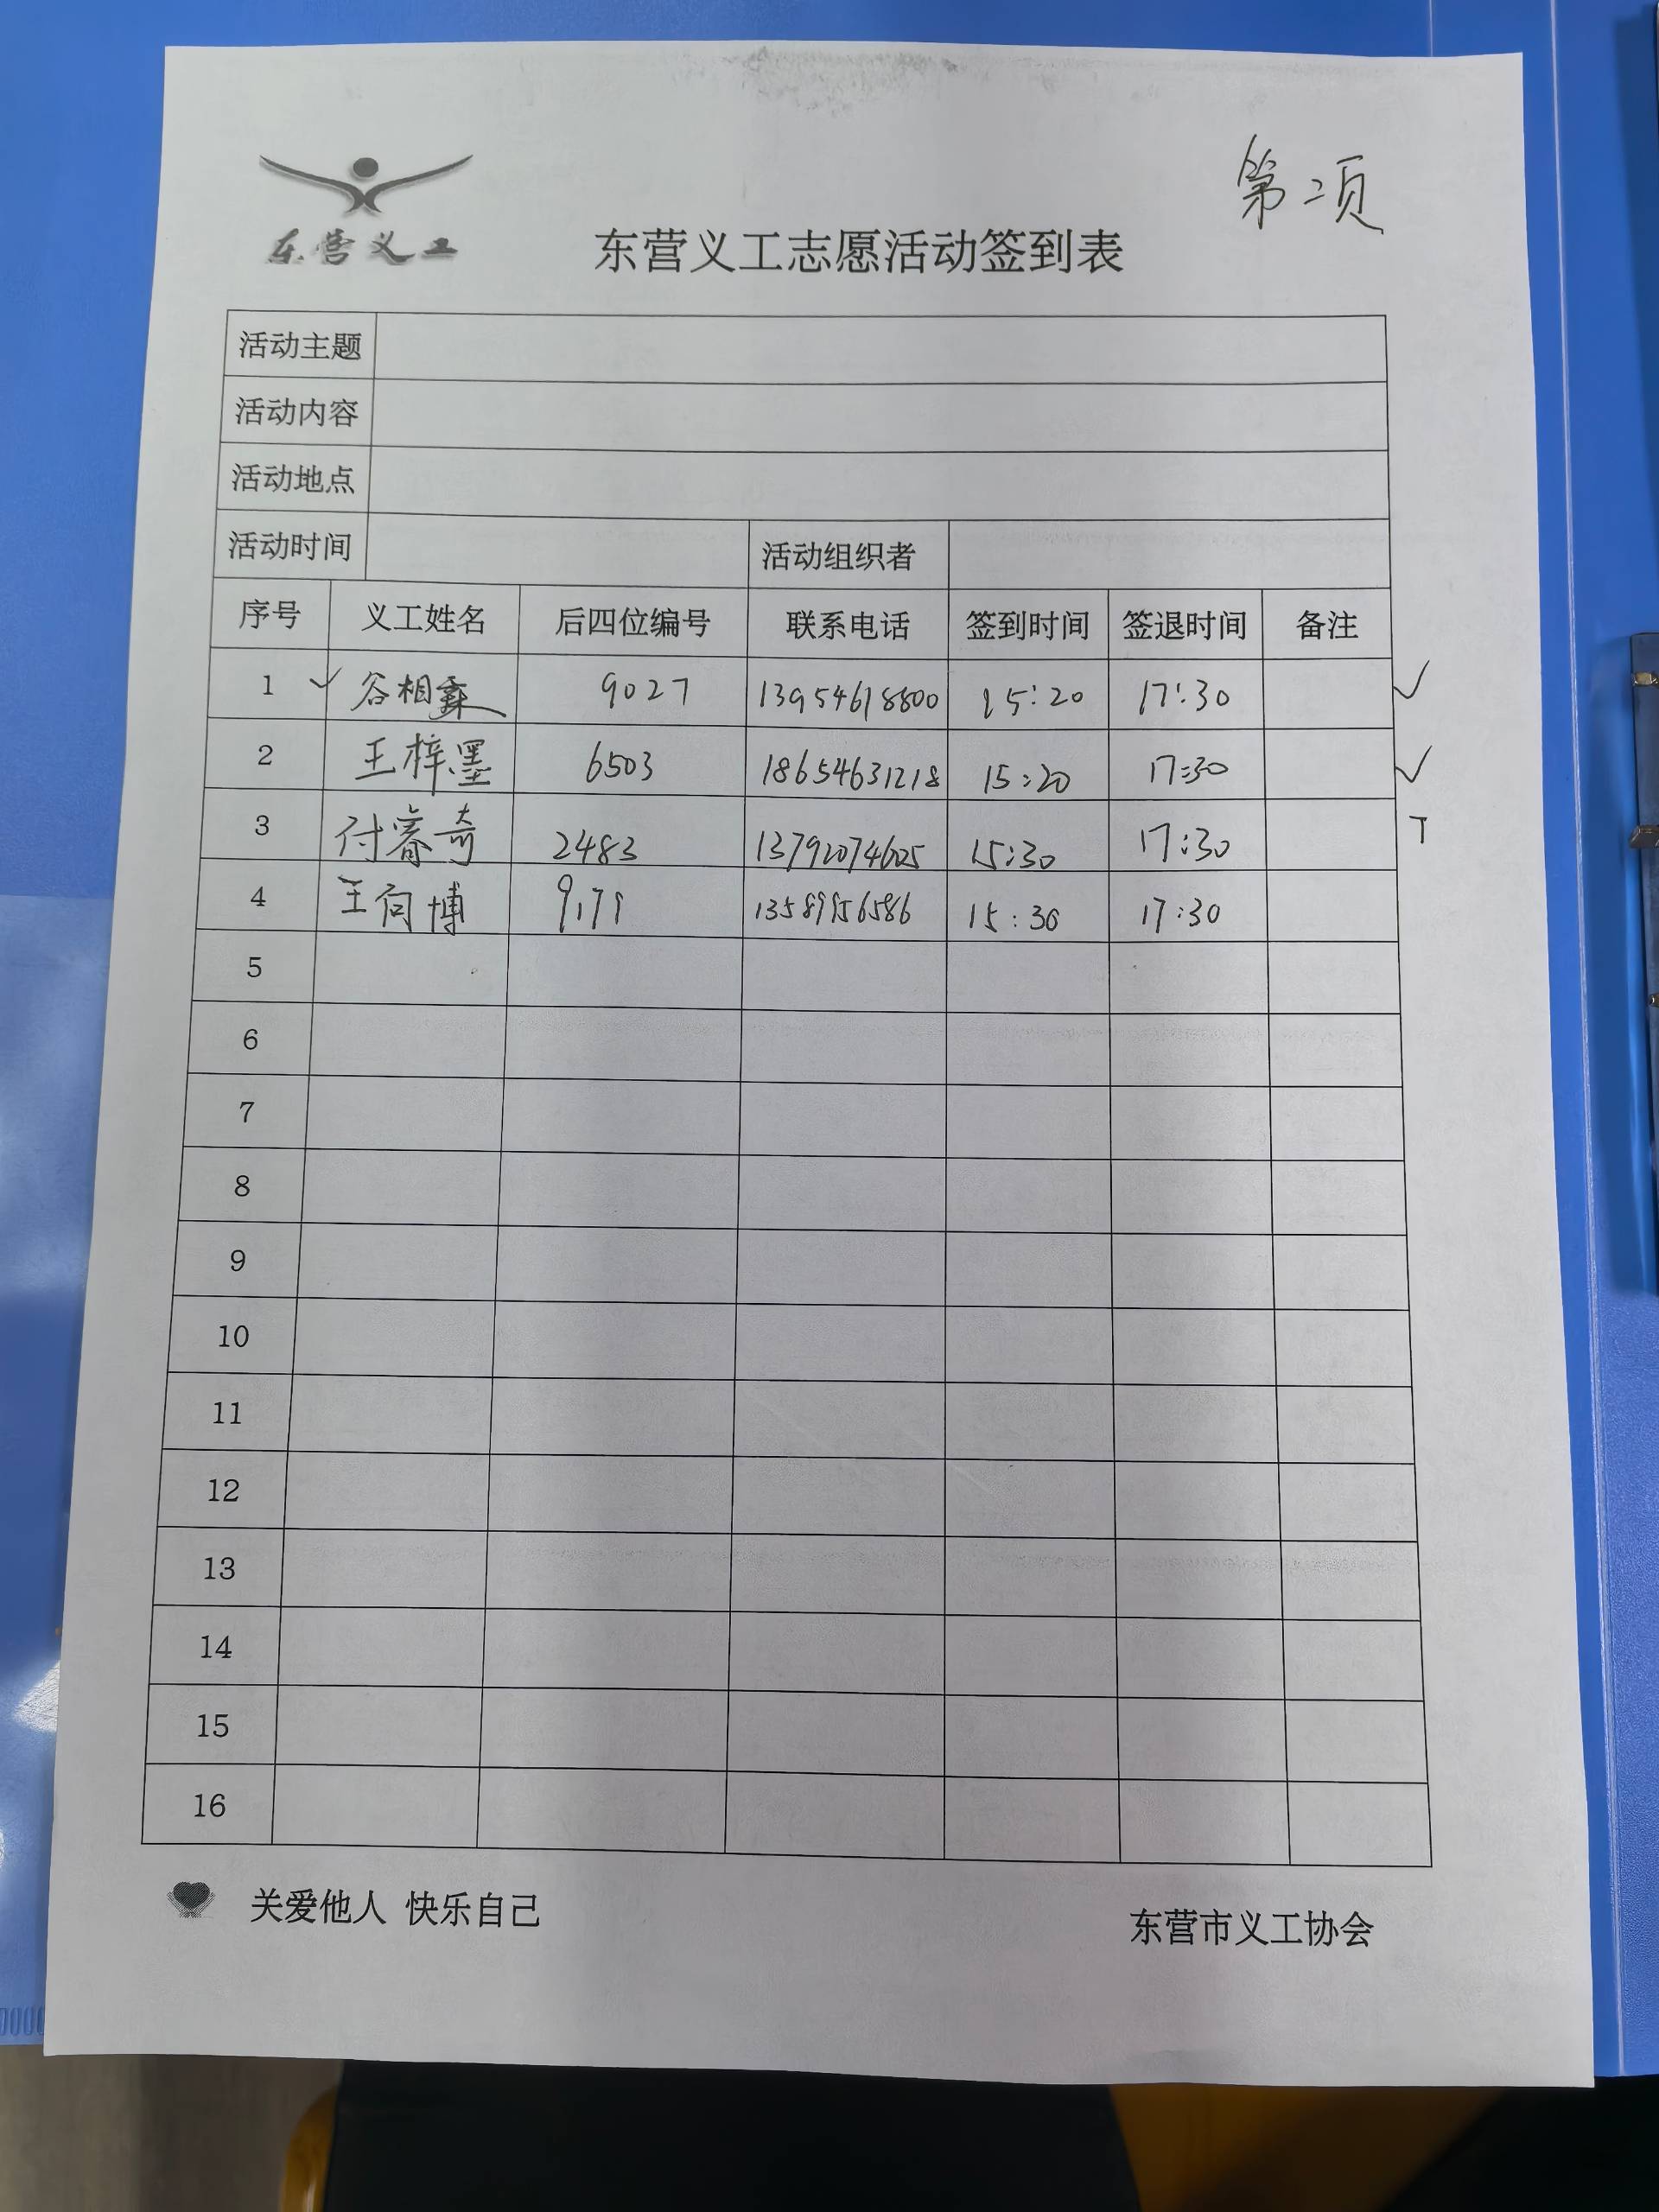 第二项
东营义工
东营义工志愿活动签到表
活动主题
活动内容
活动地点
活动时间 活动组织者
序号 义工姓名 后四位编号 联系电话 签到时间 签退时间 备注
1 ✓ 谷相鑫 9027 13954618800 15:20 17:30 ✓
2 王梓墨 6503 18654631218 15:20 17:30 ✓
3 付睿奇 2483 13792074605 15:30 17:30 T
4 王向博 13589956586 15:30 17:30
5
6
7
8
9
10
11
12
13
14
15
16
关爱他人 快乐自己
东营市义工协会